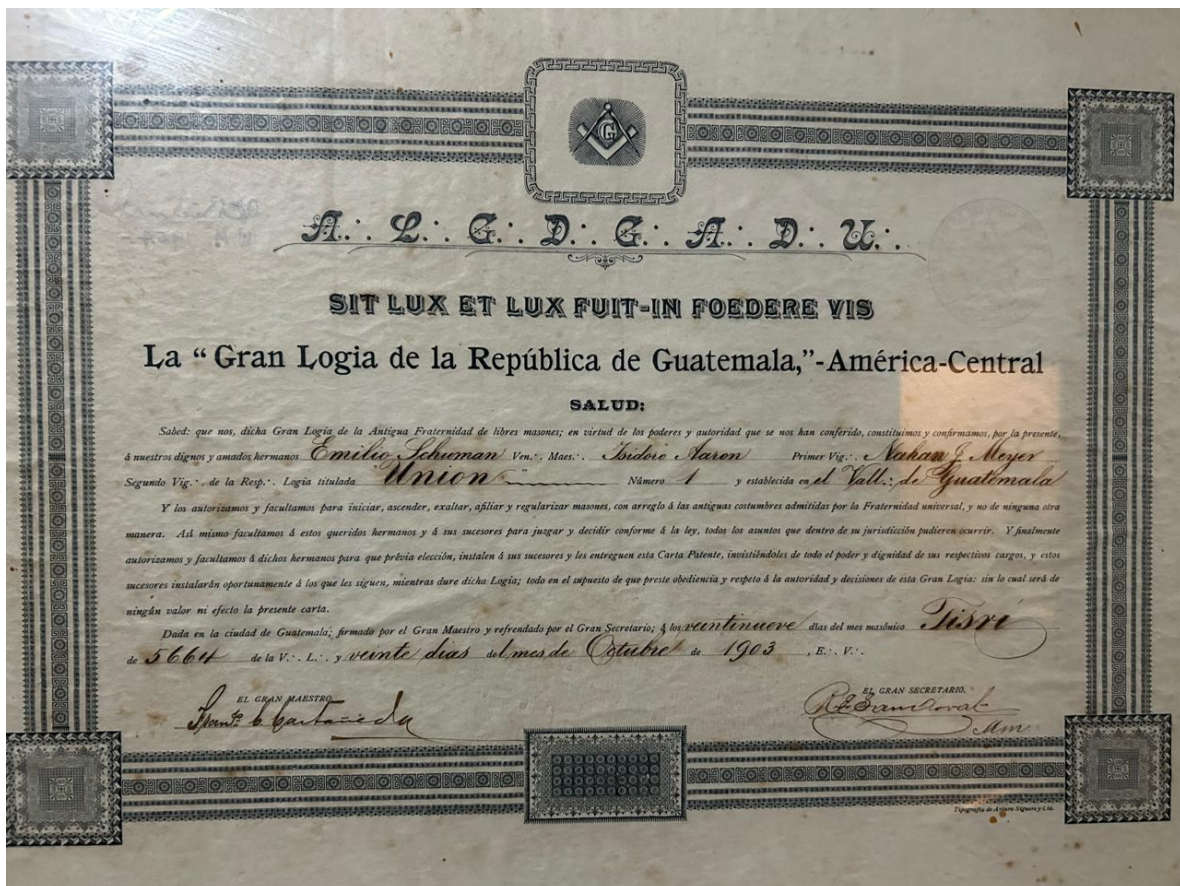 G
A∴ L∴ G∴ D∴ G∴ A∴ D∴ U∴
SIT LUX ET LUX FUIT-IN FOEDERE VIS
La “Gran Logia de la República de Guatemala,”-América-Central
SALUD:
Sabed: que nos, dicha Gran Logia de la Antigua Fraternidad de libres masones; en virtud de los poderes y autoridad que se nos han conferido, constituimos y confirmamos, por la presente,
á nuestros dignos y amados hermanos Emilio Schuman Ven∴ Maes∴ Isidoro Aaron Primer Vig∴ Nahan J. Meyer
Segundo Vig∴ de la Resp∴ Logia titulada "Union" Número 1 y establecida en el Vall∴ de Guatemala
Y los autorizamos y facultamos para iniciar, ascender, exaltar, afiliar y regularizar masones, con arreglo á las antiguas costumbres admitidas por la Fraternidad universal, y no de ninguna otra
manera. Así mismo facultamos á estos queridos hermanos y á sus sucesores para juzgar y decidir conforme á la ley, todos los asuntos que dentro de su jurisdicción pudieren ocurrir. Y finalmente
autorizamos y facultamos á dichos hermanos para que prévia elección, instalen á sus sucesores y les entreguen esta Carta Patente, invistiéndoles de todo el poder y dignidad de sus respectivos cargos, y estos
sucesores instalarán oportunamente á los que les siguen, mientras dure dicha Logia; todo en el supuesto de que preste obediencia y respeto á la autoridad y decisiones de esta Gran Logia: sin lo cual será de
ningún valor ni efecto la presente carta.
Dada en la ciudad de Guatemala; firmado por el Gran Maestro y refrendado por el Gran Secretario; á los veintinueve días del mes masónico Tisri
de 5664 de la V∴ L∴ y veinte dias del mes de Octubre de 1903, E∴ V∴
EL GRAN MAESTRO EL GRAN SECRETARIO.
Castañeda R. E. Sandoval
Tipografía de Arturo Síguere y Cía.